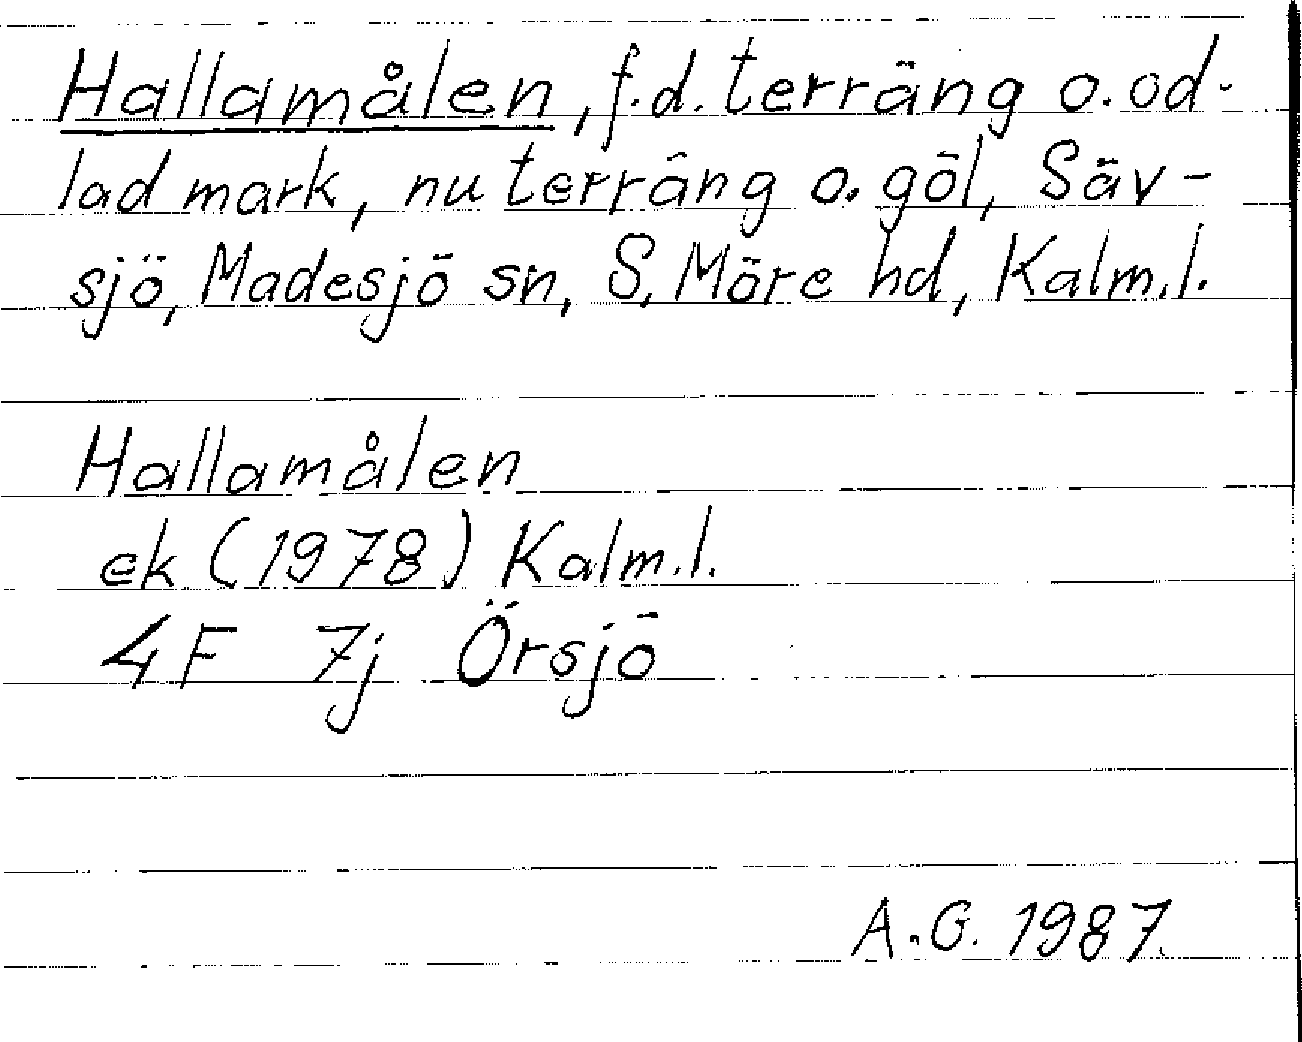 Hallamålen, f.d. terräng o. od-
lad mark, nu terräng o. göl, Säv-
sjö, Madesjö sn, S. Möre hd, Kalm.l.
Hallamålen
ek (1978) Kalm.l.
4F 7j Örsjö
A.G. 1987.